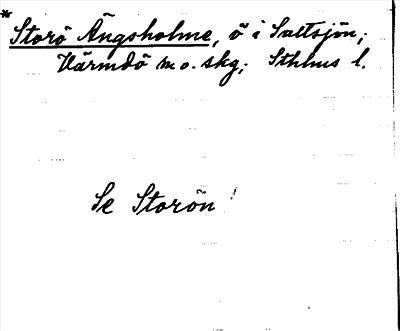 * Storö Ängsholme, ö i Saltsjön;
Värmdö m o. skg; Sthlms l.
Se Storön!